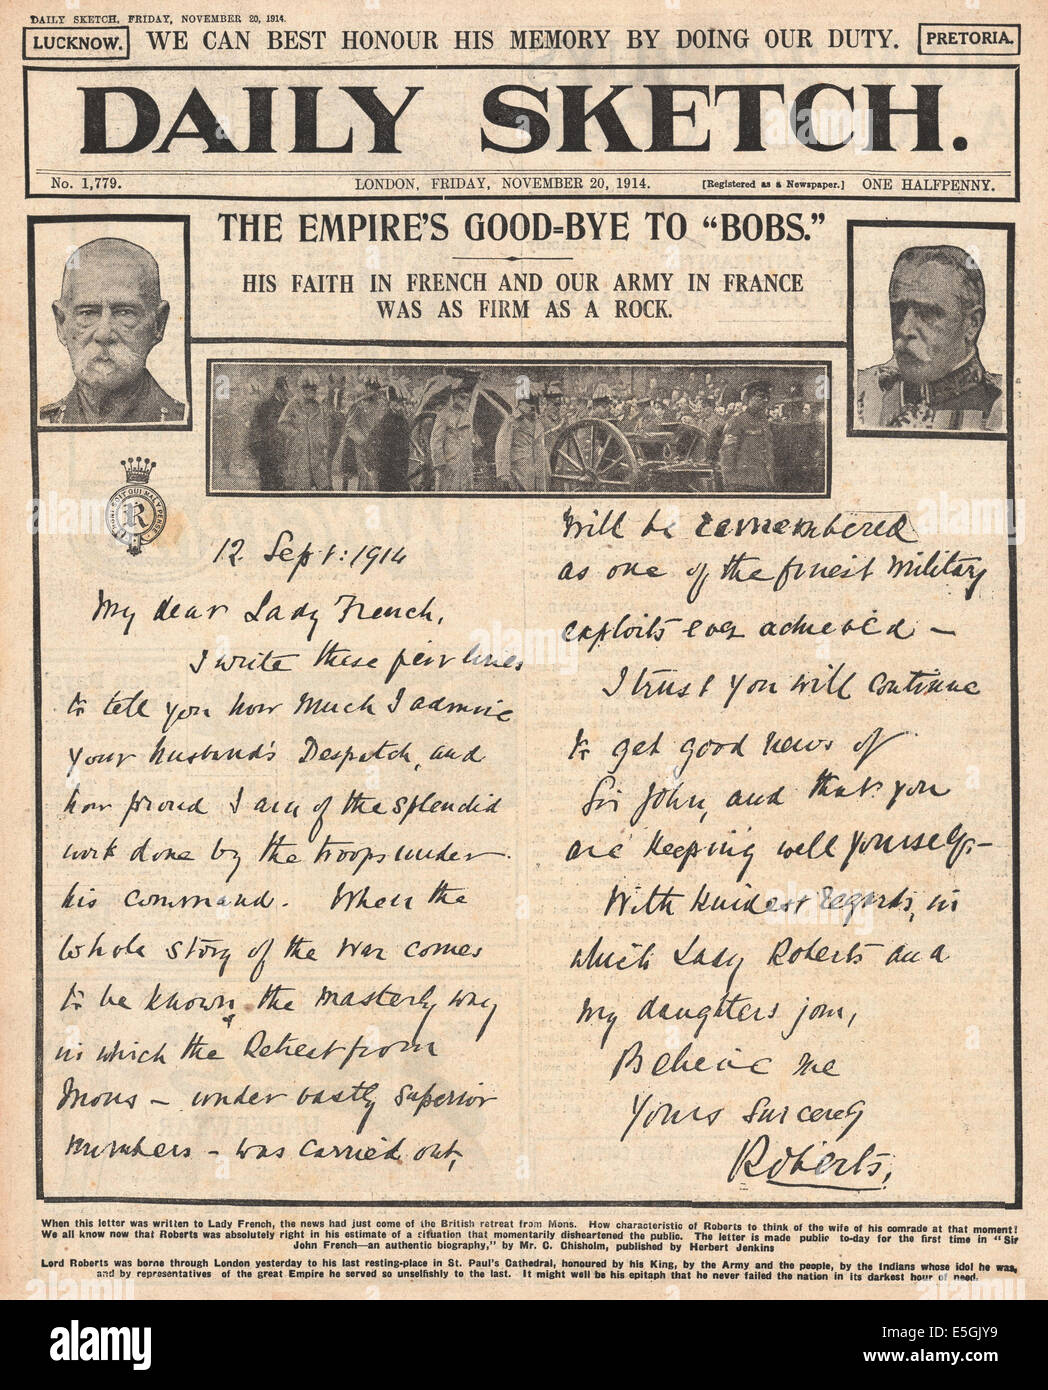 DAILY SKETCH, FRIDAY, NOVEMBER 20, 1914.
LUCKNOW. WE CAN BEST HONOUR HIS MEMORY BY DOING OUR DUTY. PRETORIA.
DAILY SKETCH.
No. 1,779. LONDON, FRIDAY, NOVEMBER 20, 1914. [Registered as a Newspaper.] ONE HALFPENNY.
THE EMPIRE'S GOOD-BYE TO "BOBS."
HIS FAITH IN FRENCH AND OUR ARMY IN FRANCE
WAS AS FIRM AS A ROCK.
HONI SOIT QUI MAL Y PENSE
R
12 Sept: 1914
My dear Lady French,
I write these few lines
to tell you how much I admire
your husband's Despatch, and
how proud I am of the splendid
work done by the troops under
his command. When the
whole story of the War comes
to be known, the masterly way
in which the Retreat from
Mons – under vastly superior
numbers – was carried out,
will be remembered
as one of the finest Military
exploits ever achieved –
I trust you will continue
to get good news of
Sir John, and that you
are keeping well yourself –
With kindest regards, in
which Lady Roberts and
my daughters join,
Believe me
Yours sincerely
Roberts.
When this letter was written to Lady French, the news had just come of the British retreat from Mons. How characteristic of Roberts to think of the wife of his comrade at that moment!
We all know now that Roberts was absolutely right in his estimate of a situation that momentarily disheartened the public. The letter is made public to-day for the first time in "Sir
John French—an authentic biography," by Mr. C. Chisholm, published by Herbert Jenkins
Lord Roberts was borne through London yesterday to his last resting-place in St. Paul's Cathedral, honoured by his King, by the Army and the people, by the Indians whose idol he was,
and by representatives of the great Empire he served so unselfishly to the last. It might well be his epitaph that he never failed the nation in its darkest hour of need.
alamy
Image ID: E5GJY9
www.alamy.com